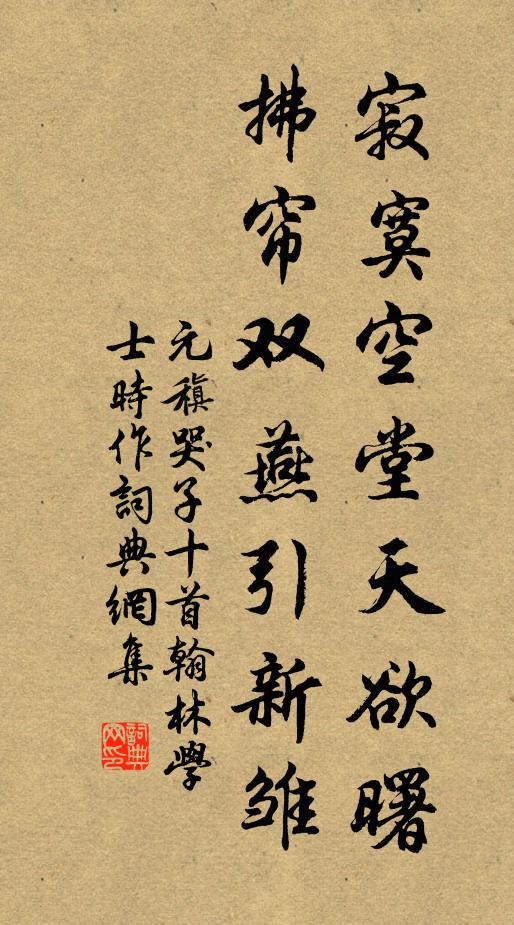 寂寞空堂天欲曙
拂帘双燕引新雏
元稹哭子十首翰林學
士時作詞典網集
詞典
网印